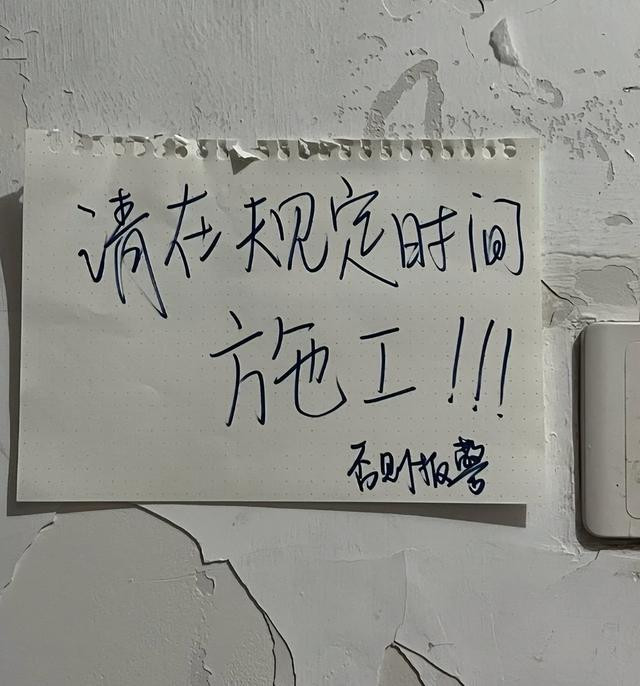 请在规定时间
施工!!!
否则报警